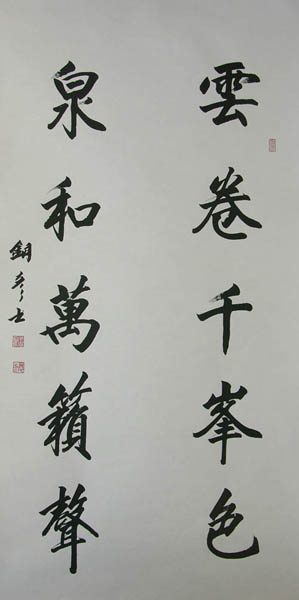 雲卷千峯色
泉和萬籟聲